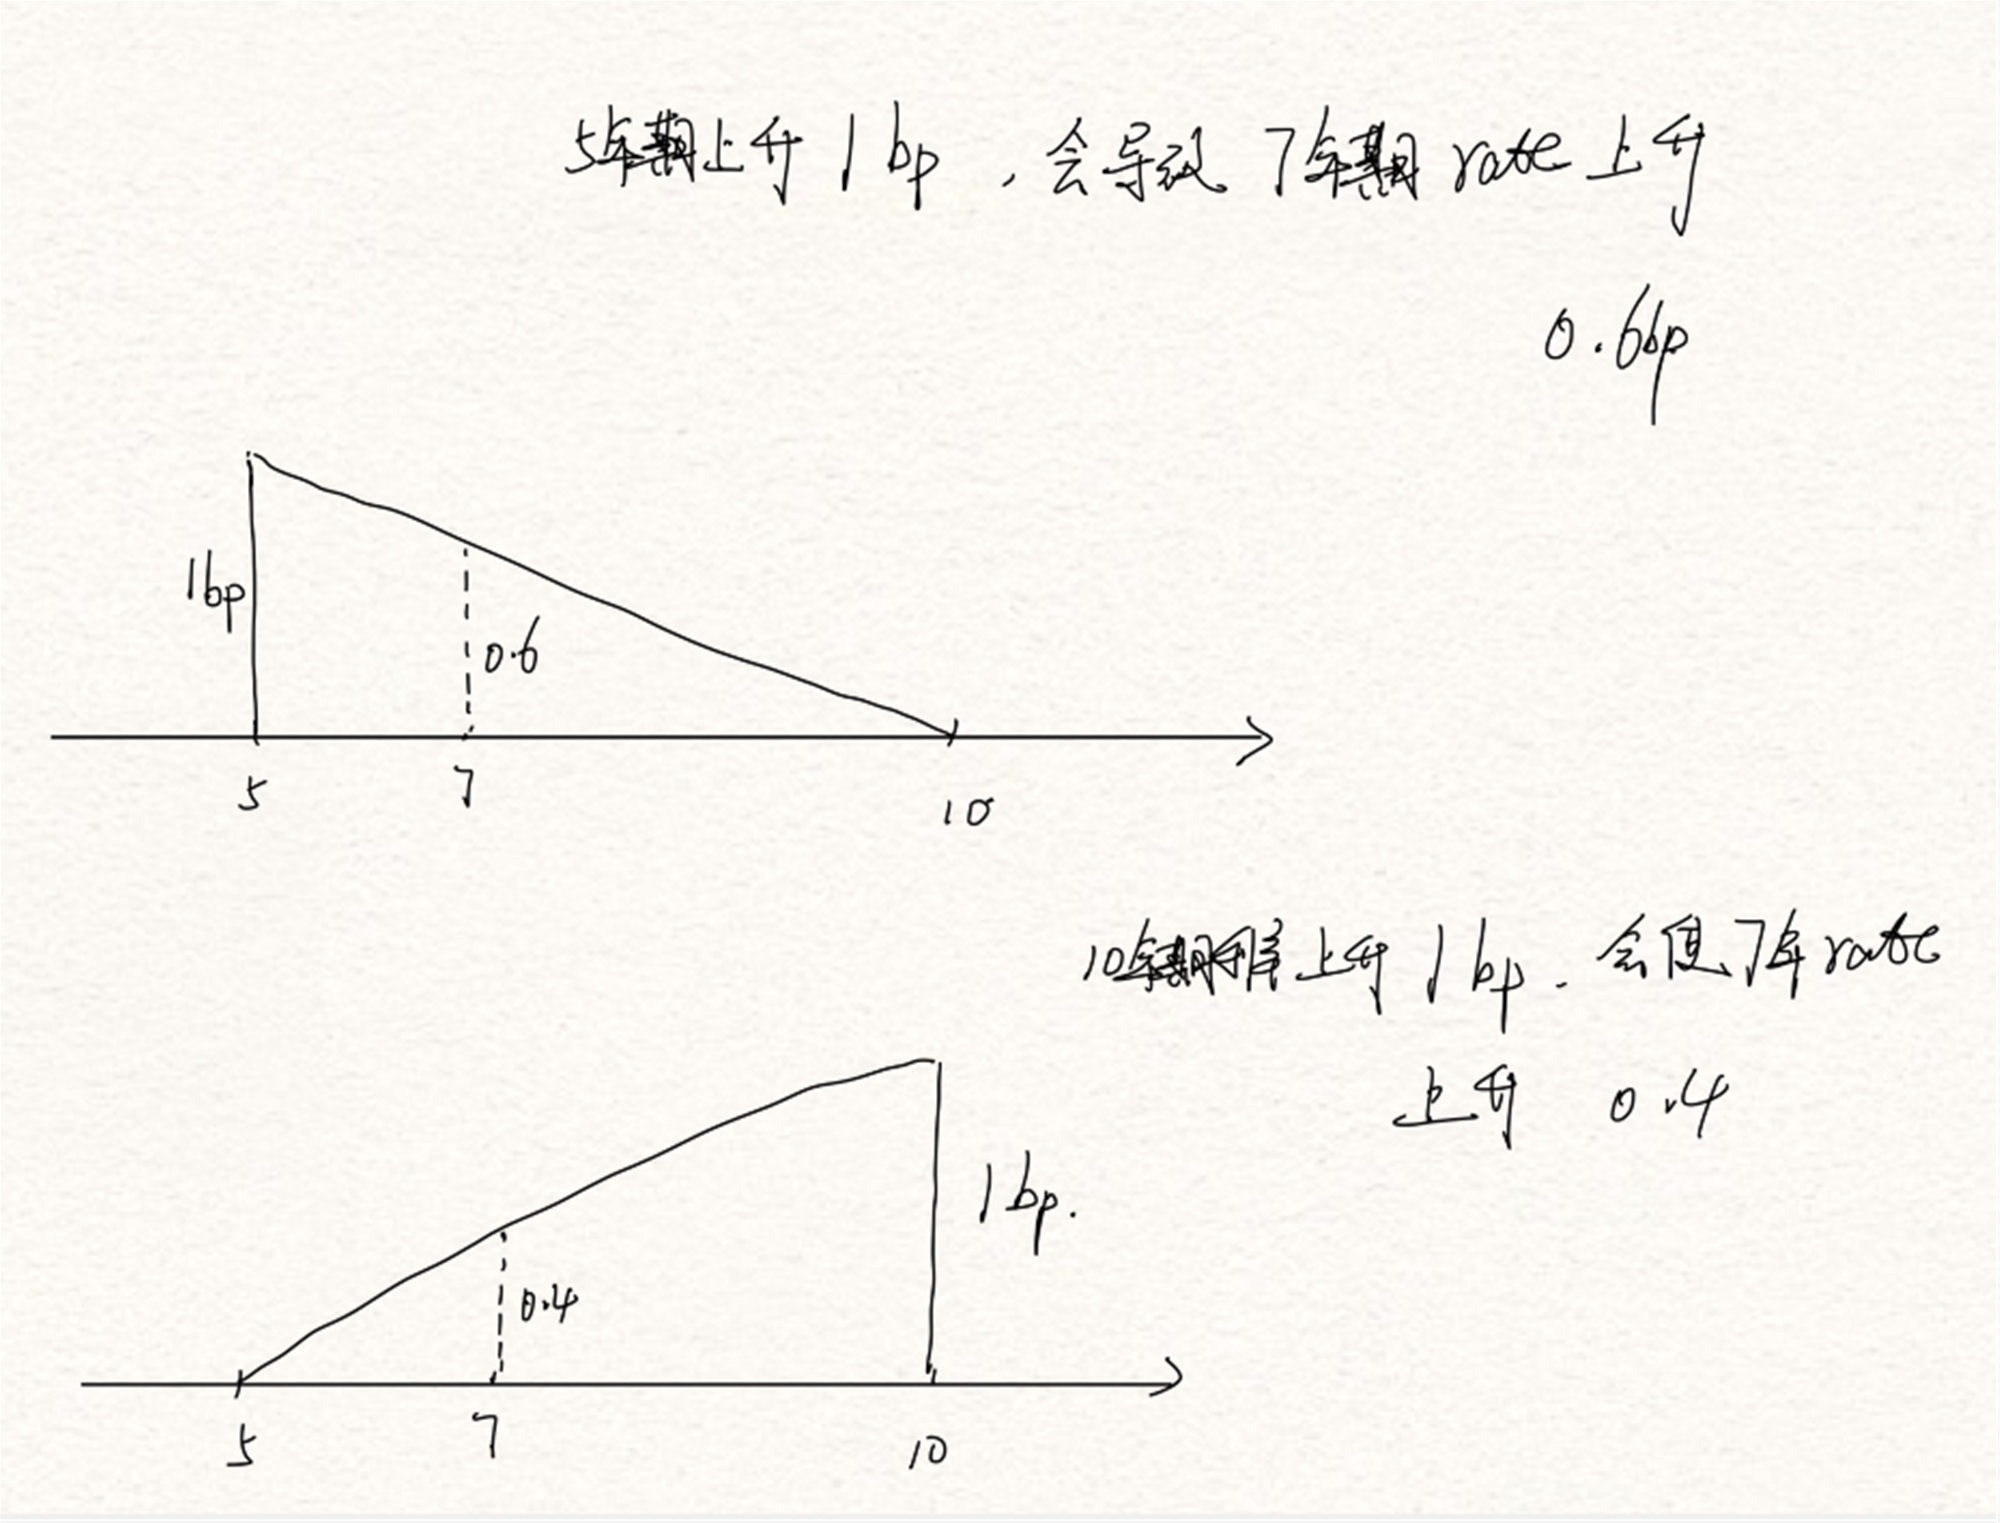 5年期上升 1 bp ，会导致 7年期 rate 上升
0.6bp
1bp
0.6
5 7 10
10年期利率上升 1 bp. 会使 7年 rate
上升 0.4
1 bp.
0.4
5 7 10